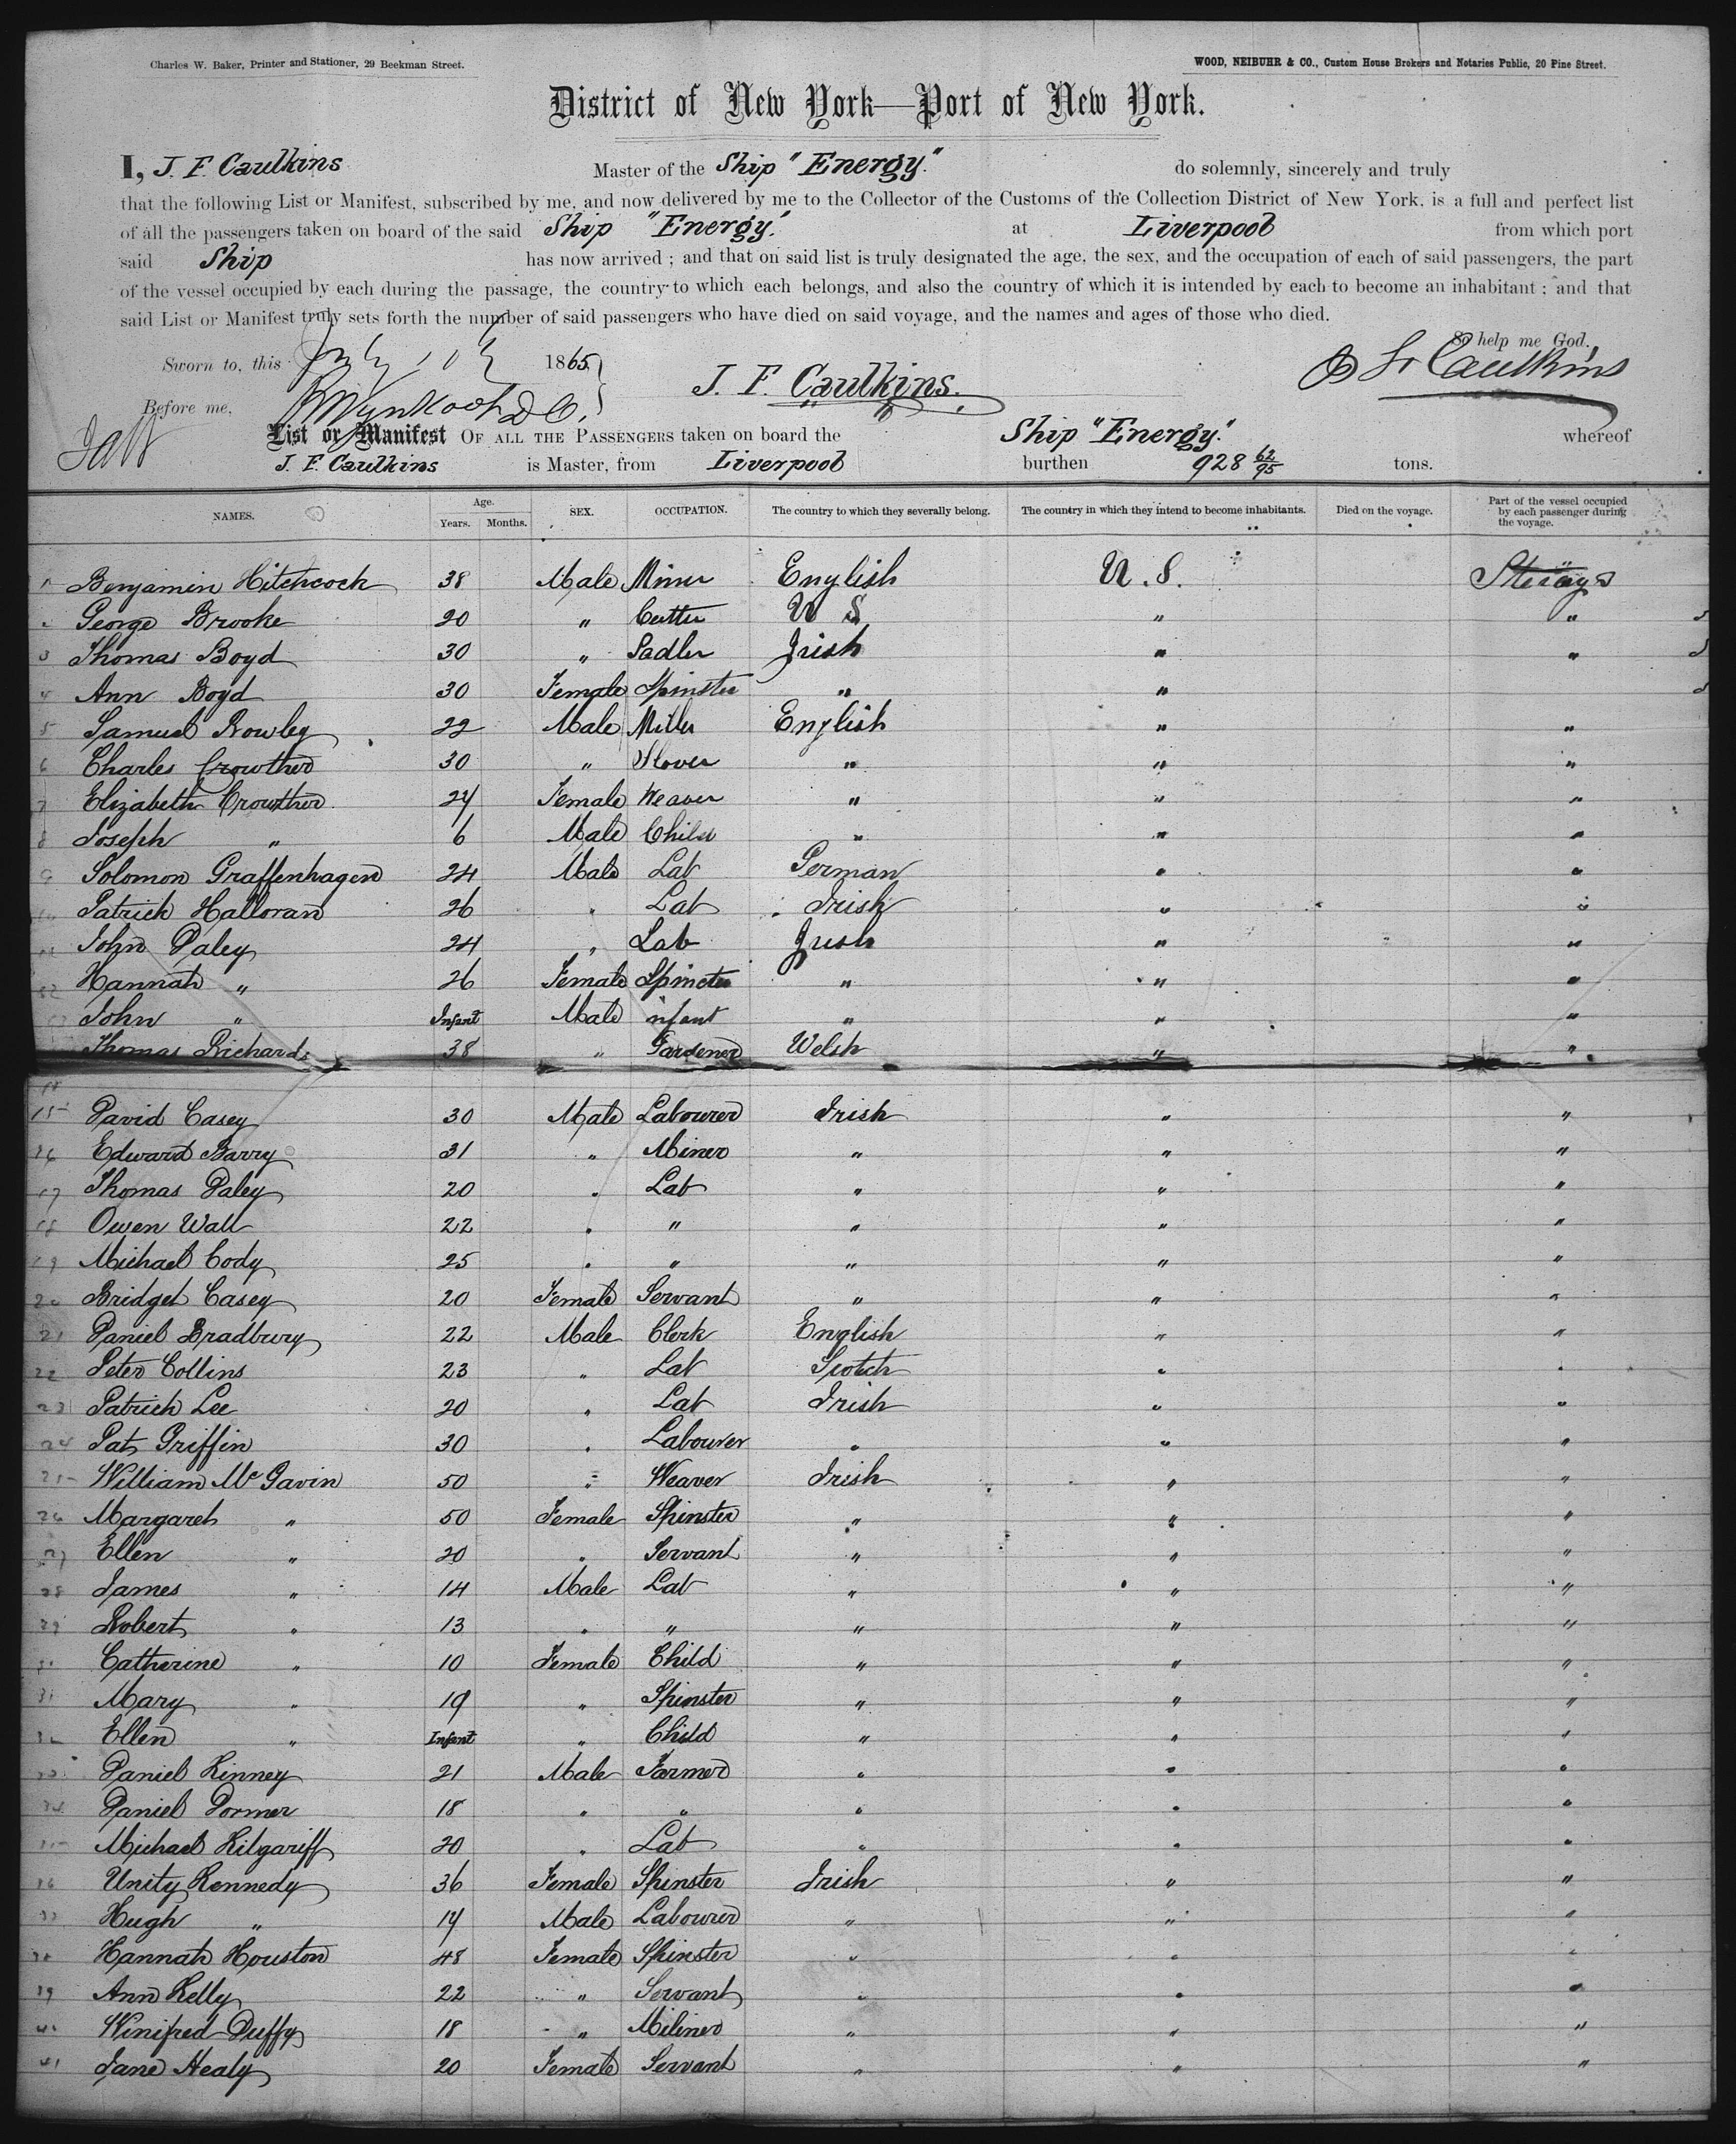 Charles W. Baker, Printer and Stationer, 29 Beekman Street.
WOOD, NEIBUHR & CO., Custom House Brokers and Notaries Public, 20 Pine Street.
District of New York—Port of New York.
I, J. F. Caulkins Master of the Ship "Energy" do solemnly, sincerely and truly
that the following List or Manifest, subscribed by me, and now delivered by me to the Collector of the Customs of the Collection District of New York, is a full and perfect list
of all the passengers taken on board of the said Ship "Energy" at Liverpool from which port
said Ship has now arrived ; and that on said list is truly designated the age, the sex, and the occupation of each of said passengers, the part
of the vessel occupied by each during the passage, the country to which each belongs, and also the country of which it is intended by each to become an inhabitant ; and that
said List or Manifest truly sets forth the number of said passengers who have died on said voyage, and the names and ages of those who died.
So help me God.
Sworn to, this July 10 1865
J. F. Caulkins.
J F Caulkins
Before me,
List or Manifest OF ALL THE PASSENGERS taken on board the Ship "Energy" whereof
J. F. Caulkins is Master, from Liverpool burthen 928 62/95 tons.
NAMES. Age. Years. Months. SEX. OCCUPATION. The country to which they severally belong. The country in which they intend to become inhabitants. Died on the voyage. Part of the vessel occupied by each passenger during the voyage.
1 Benjamin Hitchcock 38 Male Miner English U. S. Steerage
2 George Brooke 20 " Cutter U S " "
3 Thomas Boyd 30 " Sadler Irish " "
4 Ann Boyd 30 Female Spinster " "
5 Samuel Rowley 22 Male Miller English " "
6 Charles Crowther 30 " " " "
7 Elizabeth Crowther 24 Female Weaver " " "
8 Joseph " 6 Male Child " " "
9 Solomon Graffenhagen 24 Male Lab German " "
10 Patrick Halloran 26 " Lab Irish " "
11 John Daley 24 " Lab Irish " "
12 Hannah " 26 Female Spinster " " "
13 John " Infant Male infant " " "
Thomas Richards 38 " Gardener Welsh " "
15 David Casey 30 Male Labourer Irish " "
16 Edward Barry 31 " Miner " " "
17 Thomas Daley 20 " Lab " " "
18 Owen Wall 22 " " " " "
19 Michael Cody 25 " " " " "
20 Bridget Casey 20 Female Servant " " "
21 Daniel Bradbury 22 Male Clerk English " "
22 Peter Collins 23 " Lab Scotch " "
23 Patrick Lee 20 " Lab Irish " "
24 Pat Griffin 30 " Labourer " " "
25 William McGavin 50 " Weaver Irish " "
26 Margaret " 50 Female Spinster " " "
27 Ellen " 20 " Servant " " "
28 James " 14 Male Lab " " "
29 Robert " 13 " " " " "
30 Catherine " 10 Female Child " " "
31 Mary " 19 " Spinster " " "
32 Ellen " Infant " Child " " "
33 Daniel Kinney 21 Male Farmer " " "
34 Daniel Dormer 18 " " " " "
35 Michael Kilgariff 20 " Lab " " "
36 Unity Kennedy 36 Female Spinster Irish " "
37 Hugh " 14 Male Labourer " " "
38 Hannah Houston 48 Female Spinster " " "
39 Ann Kelly 22 " Servant " " "
40 Winifred Duffy 18 " Miliner " " "
41 Jane Healy 20 Female Servant " " "